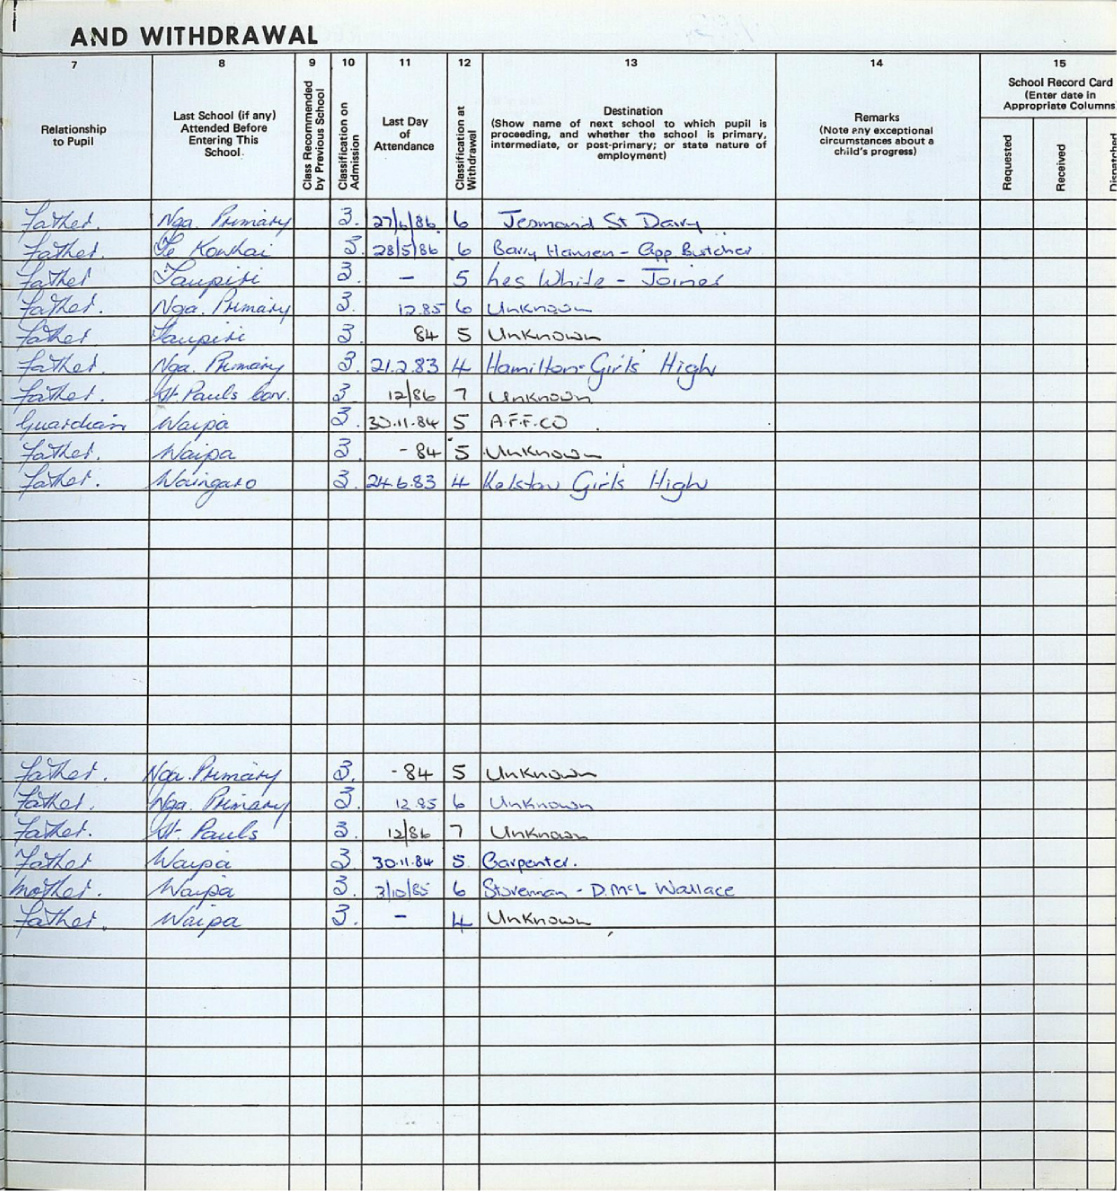 AND WITHDRAWAL
7 8 9 10 11 12 13 14 15
Relationship to Pupil
Last School (if any) Attended Before Entering This School
Class Recommended by Previous School
Classification on Admission
Last Day of Attendance
Classification at Withdrawal
Destination
(Show name of next school to which pupil is proceeding, and whether the school is primary, intermediate, or post-primary; or state nature of employment)
Remarks
(Note any exceptional circumstances about a child's progress)
School Record Card
(Enter date in Appropriate Columns
Requested
Received
Dispatched
Father. Nga. Primary 3. 27/6/86 6 Jesmond St Dairy
Father. Te Kowhai 3. 28/5/86 6 Barry Hansen - App Butcher
Father Taupiri 3. - 5 Les White - Joiner
Father. Nga. Primary 3. 12.85 6 Unknown
Father Taupiri 3 84 5 Unknown
Father. Nga. Primary 3. 21.2.83 4 Hamilton Girls' High
Father. St. Pauls Con. 3 12/86 7 Unknown
Guardian Waipa 3 30.11.84 5 A.F.F.CO
Father. Waipa 3 - 84 5 Unknown
Father. Waingaro 3. 24.6.83 4 Kelston Girls High
Father. Nga. Primary 3. - 84 5 Unknown
Father. Nga. Primary 3. 12.85 6 Unknown
Father. St. Pauls 3. 12/86 7 Unknown
Father Waipa 3. 30.11.84 5 Carpenter.
Mother. Waipa 3. 3/10/85 6 Storeman - D. McL Wallace
Father. Waipa 3. - 4 Unknown